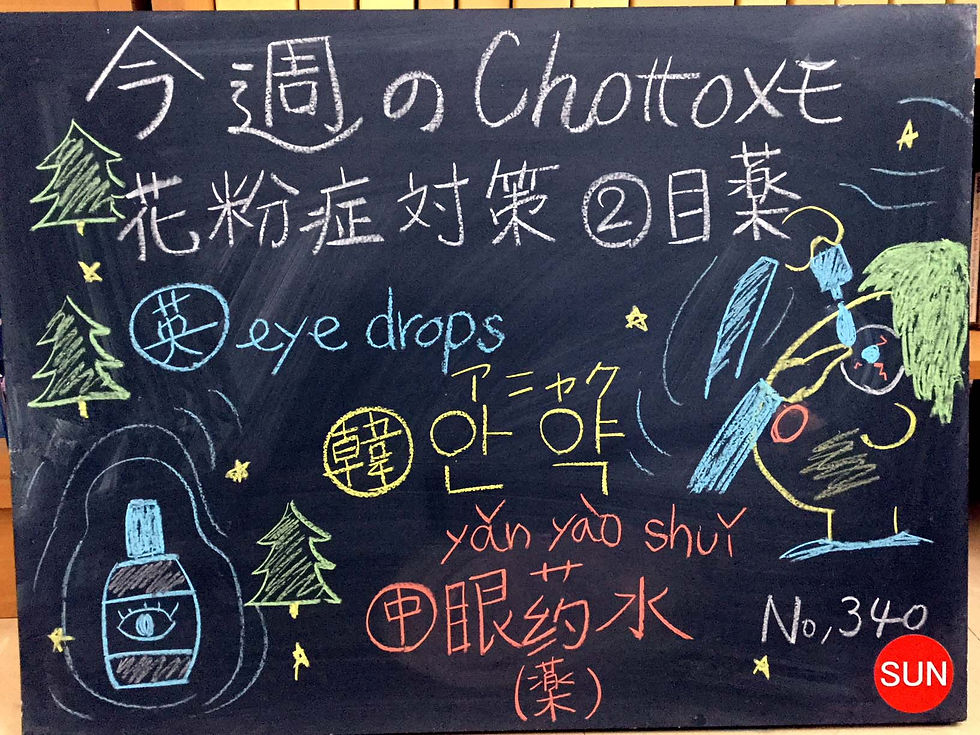 今週のChottoXモ
花粉症対策②目薬
英 eye drops
アニャク
韓 안약
yǎn yào shuǐ
中 眼药水
(薬)
No,340
SUN